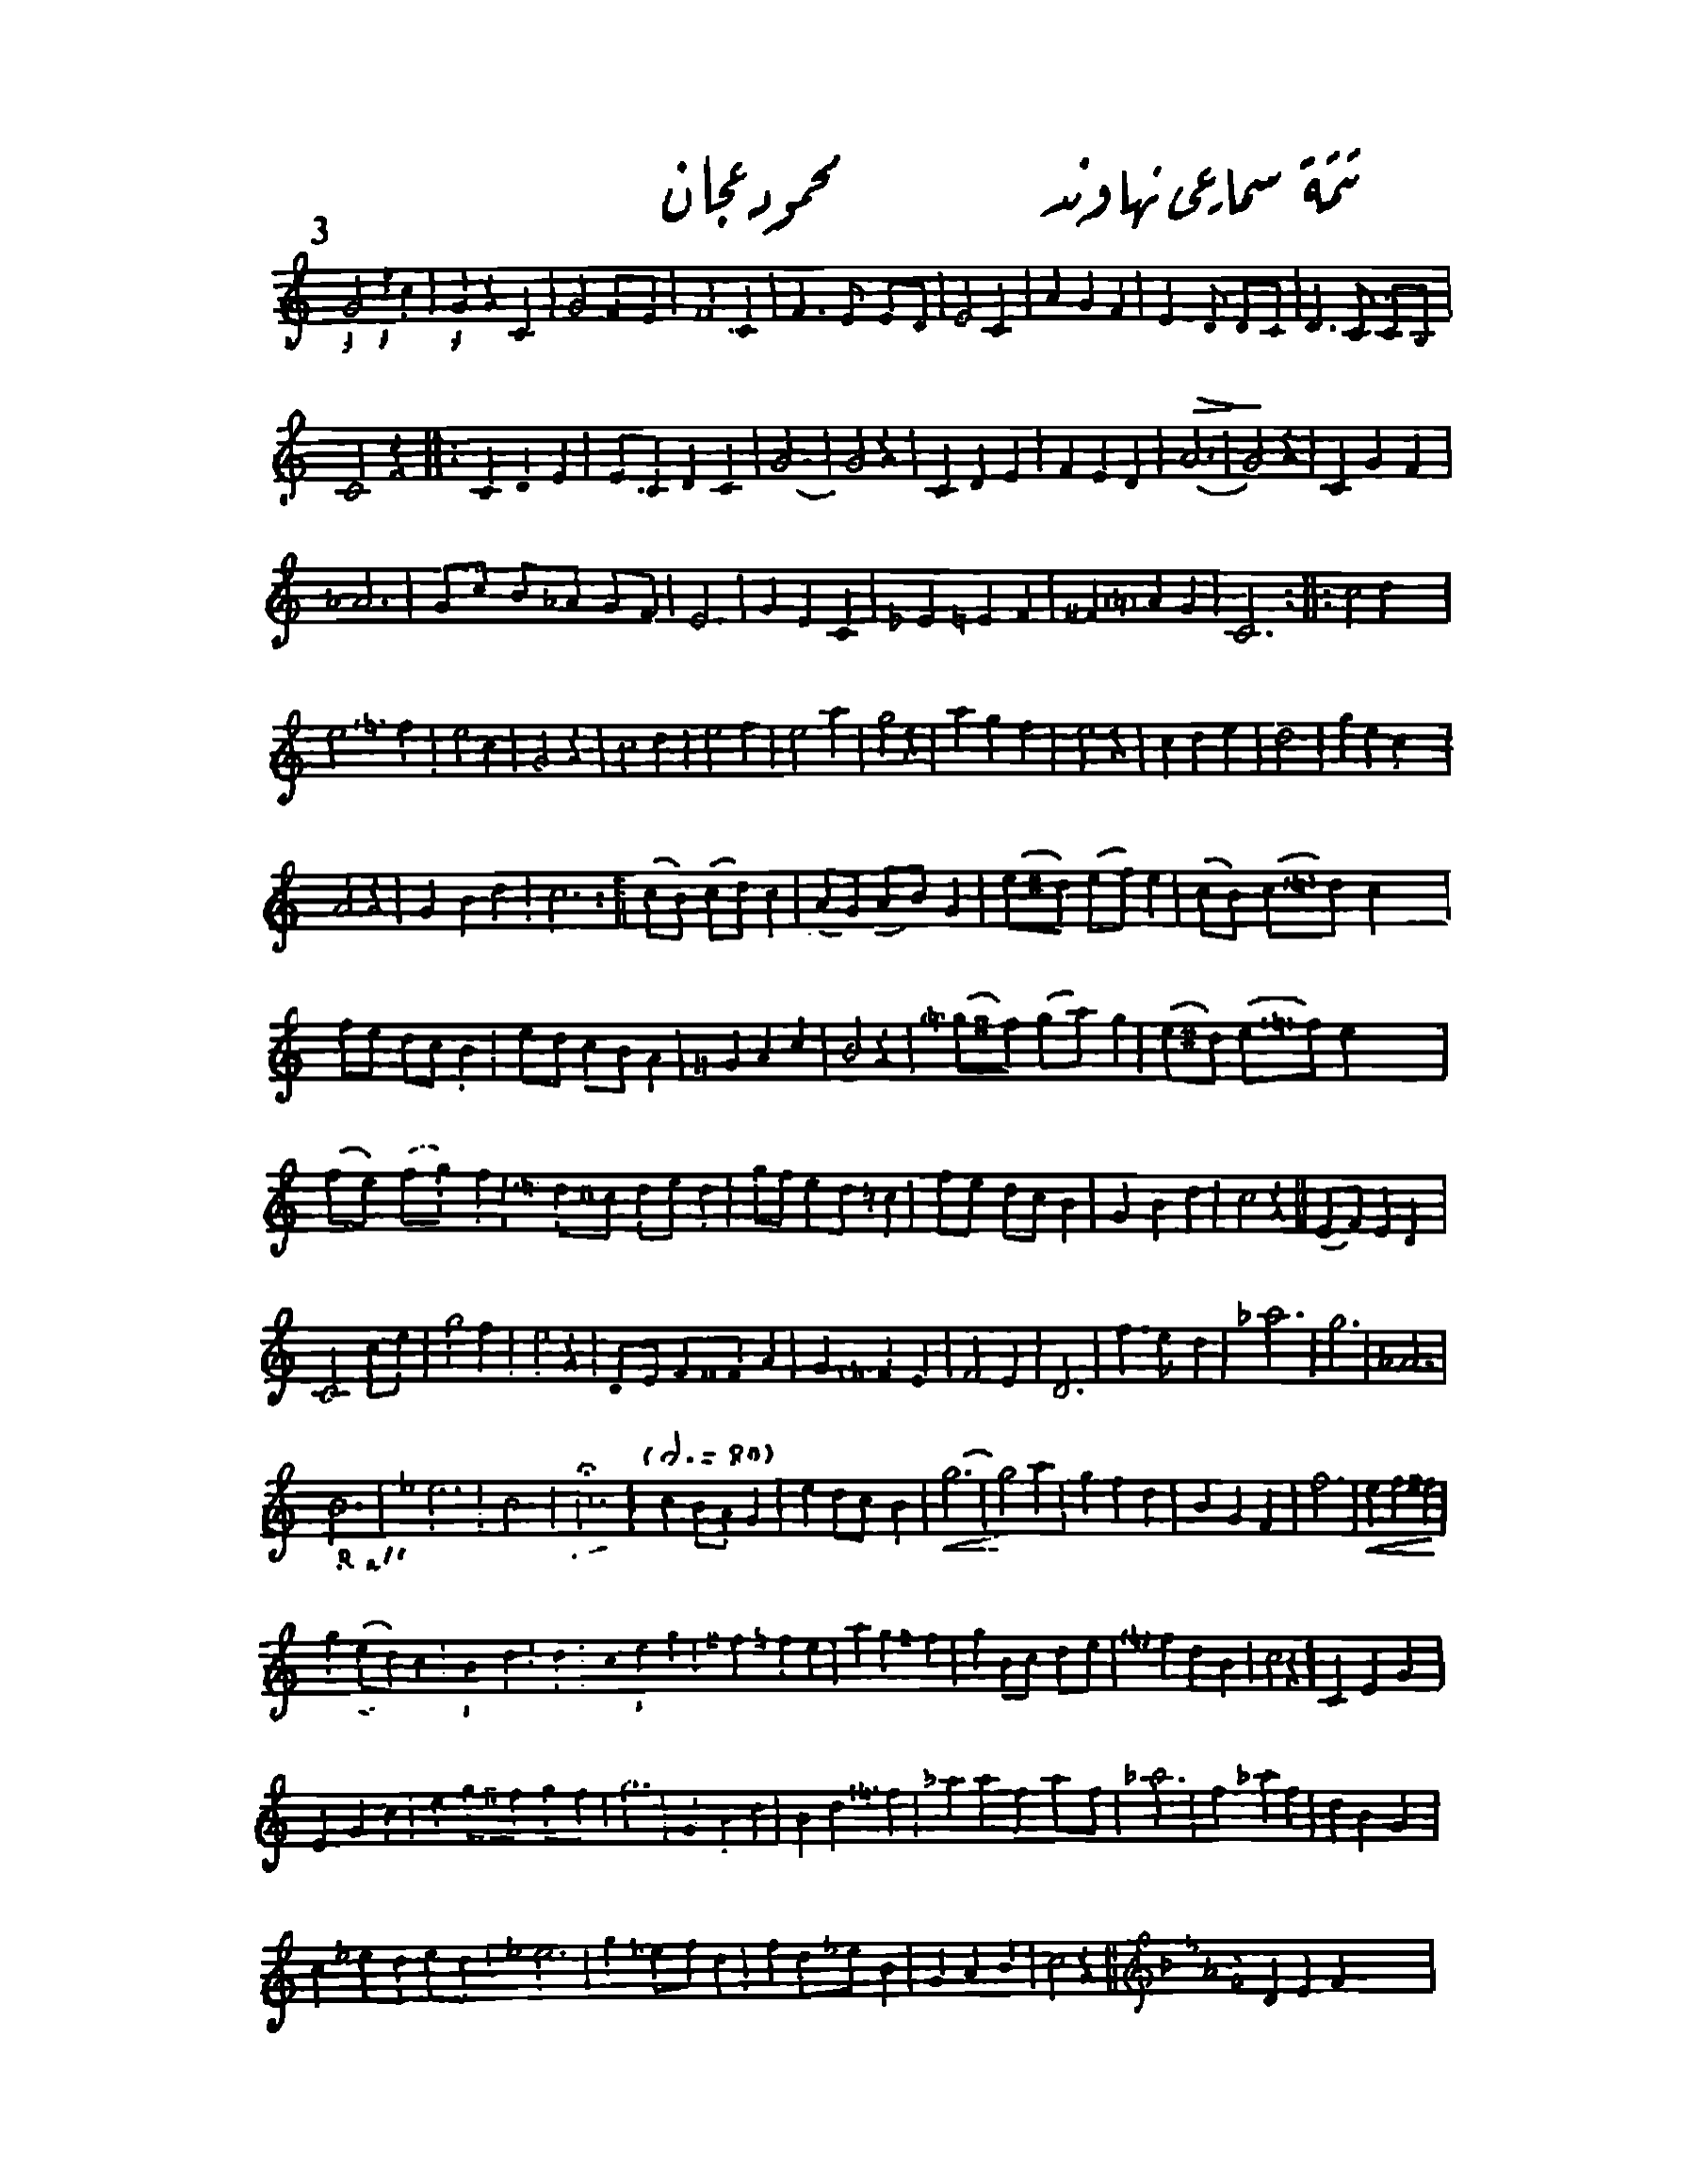 تتمة سماعي نهاوند محمود عجان
3